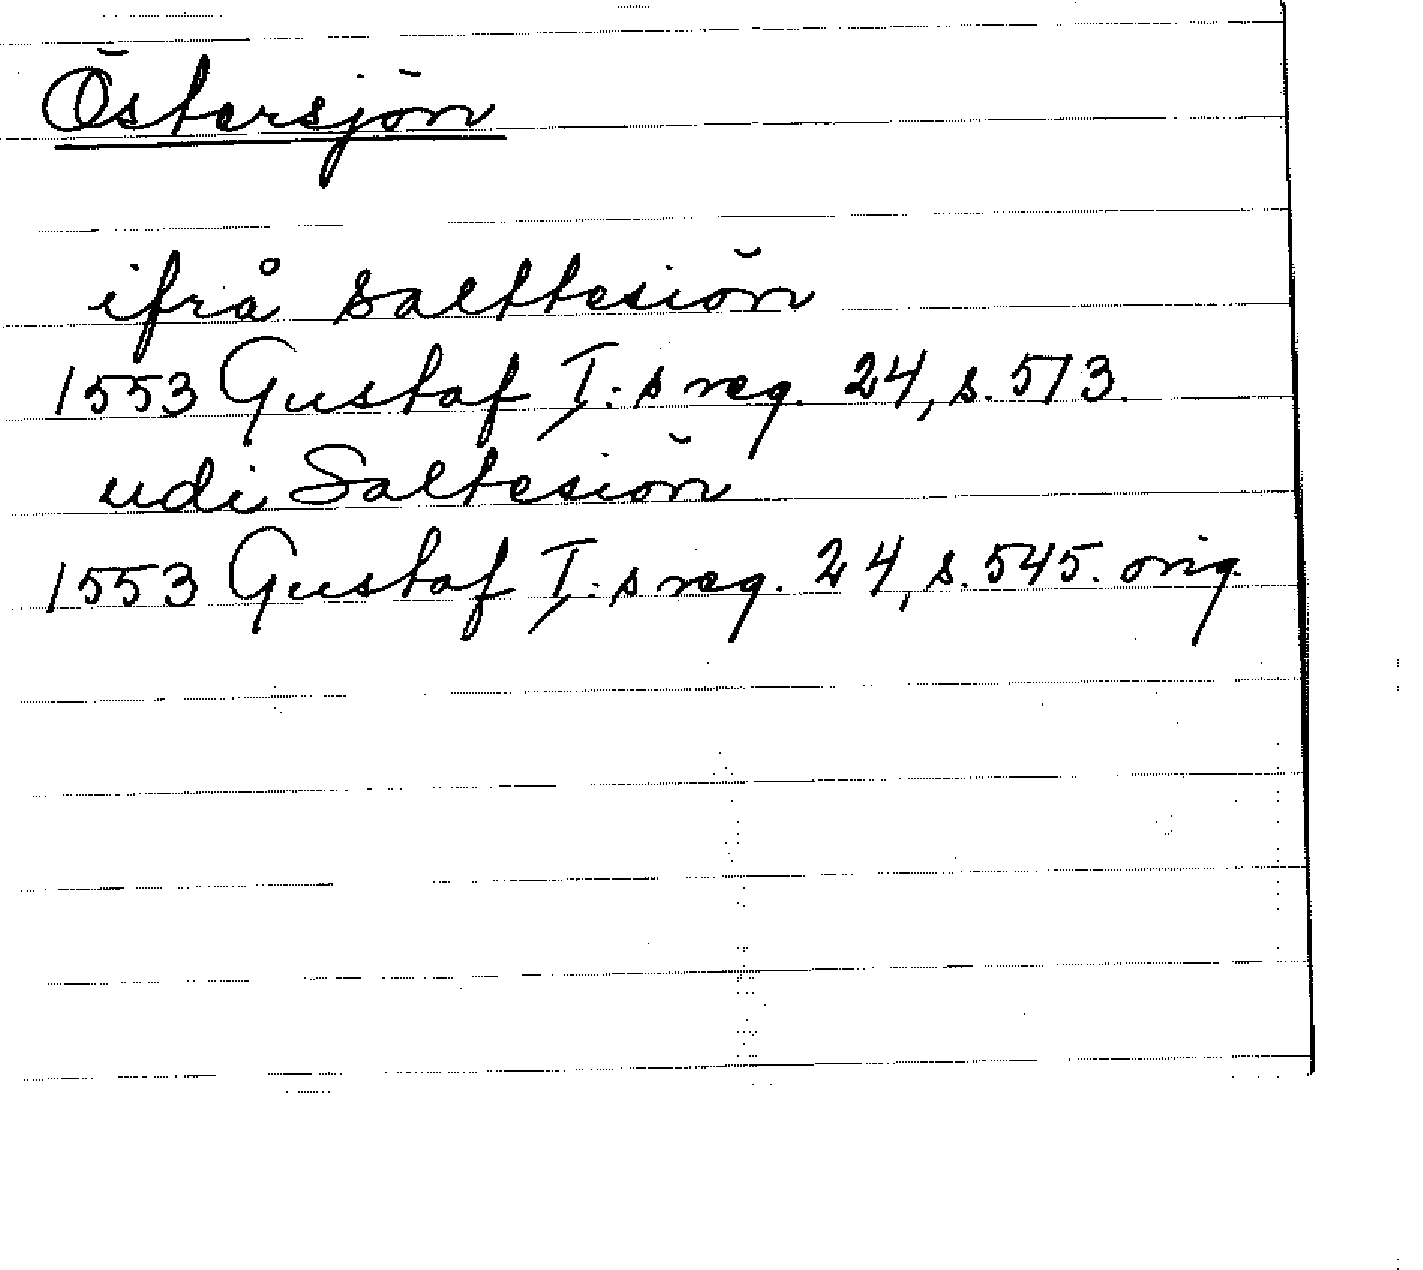 Östersjön
ifrå salttesiön
1553 Gustaf I:s reg. 24, s. 513.
udi Saltesiön
1553 Gustaf I:s reg. 24, s. 545. orig.